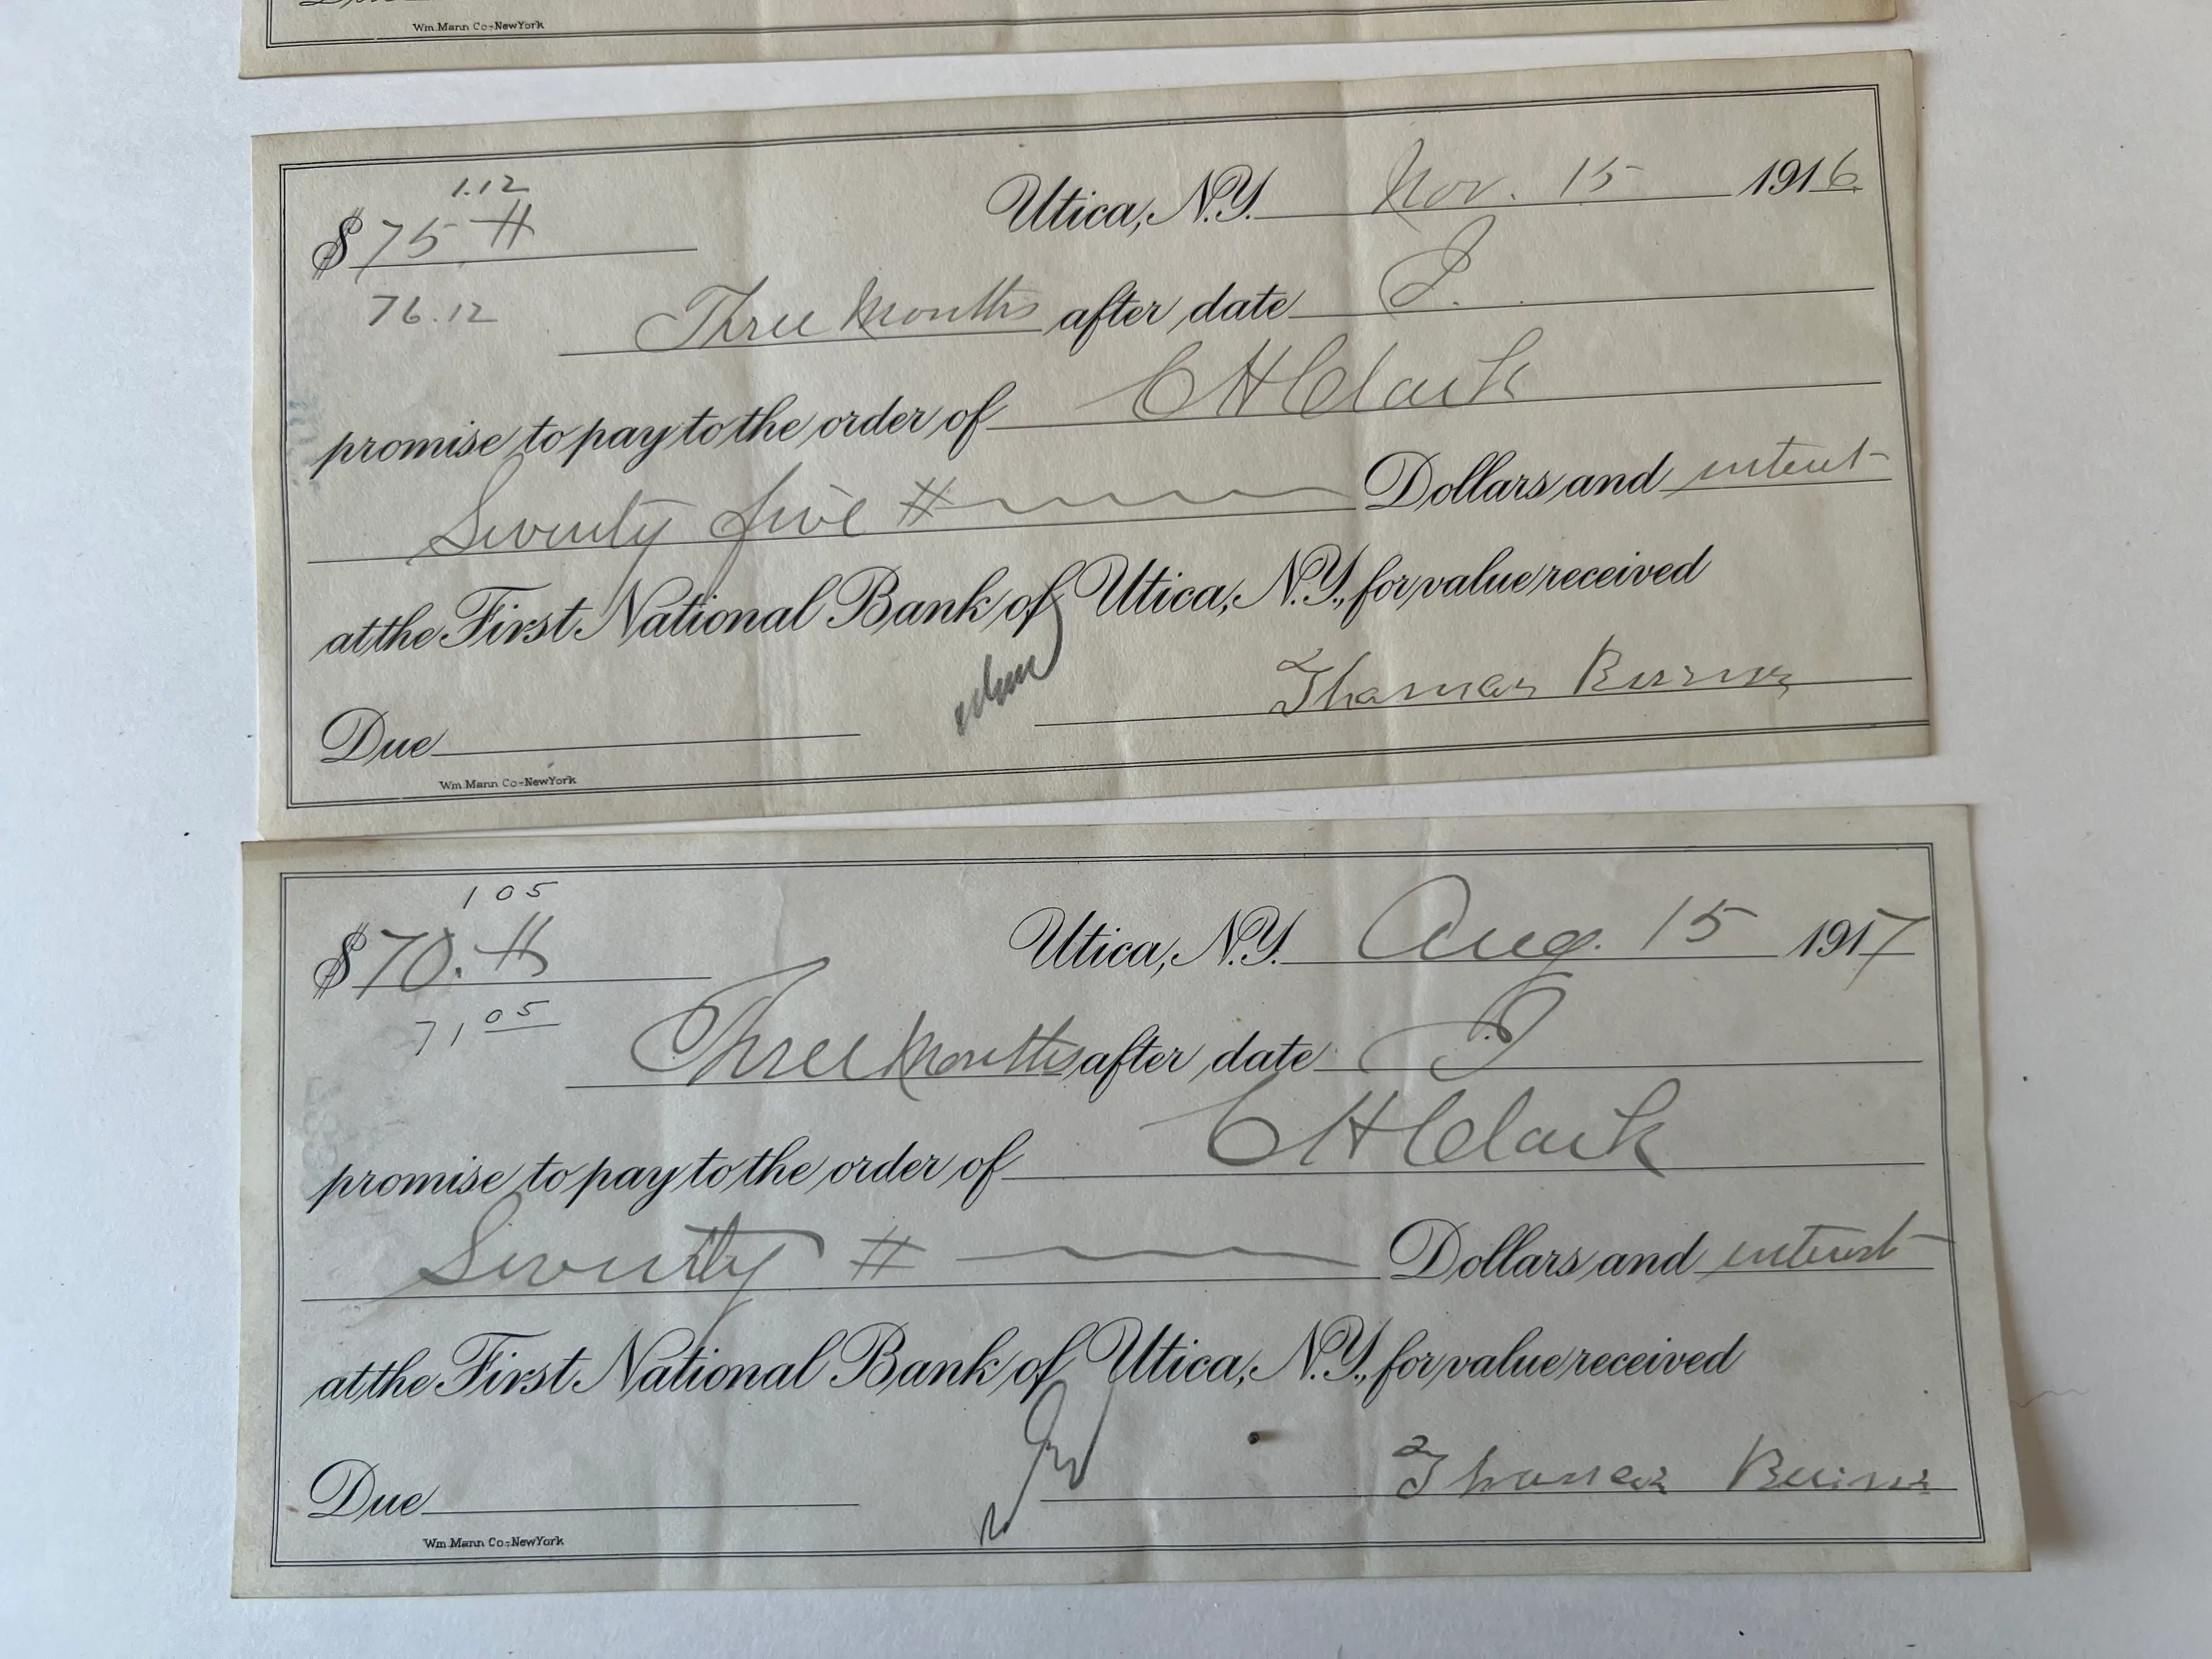 Wm. Mann Co-NewYork
1.12
Utica, N.Y. Nov. 15 1916
$75 #
76.12
Three Months after date I
promise to pay to the order of C H Clark
Seventy five # Dollars and interest
at the First National Bank of Utica, N.Y., for value received
Thomas Burns
Due
Wm. Mann Co-NewYork
1 05
Utica, N.Y. Aug. 15 1917
$70. #
71 05
Three Months after date I
promise to pay to the order of C H Clark
Seventy # Dollars and interest
at the First National Bank of Utica, N.Y., for value received
Thomas Burns
Due
Wm. Mann Co-NewYork